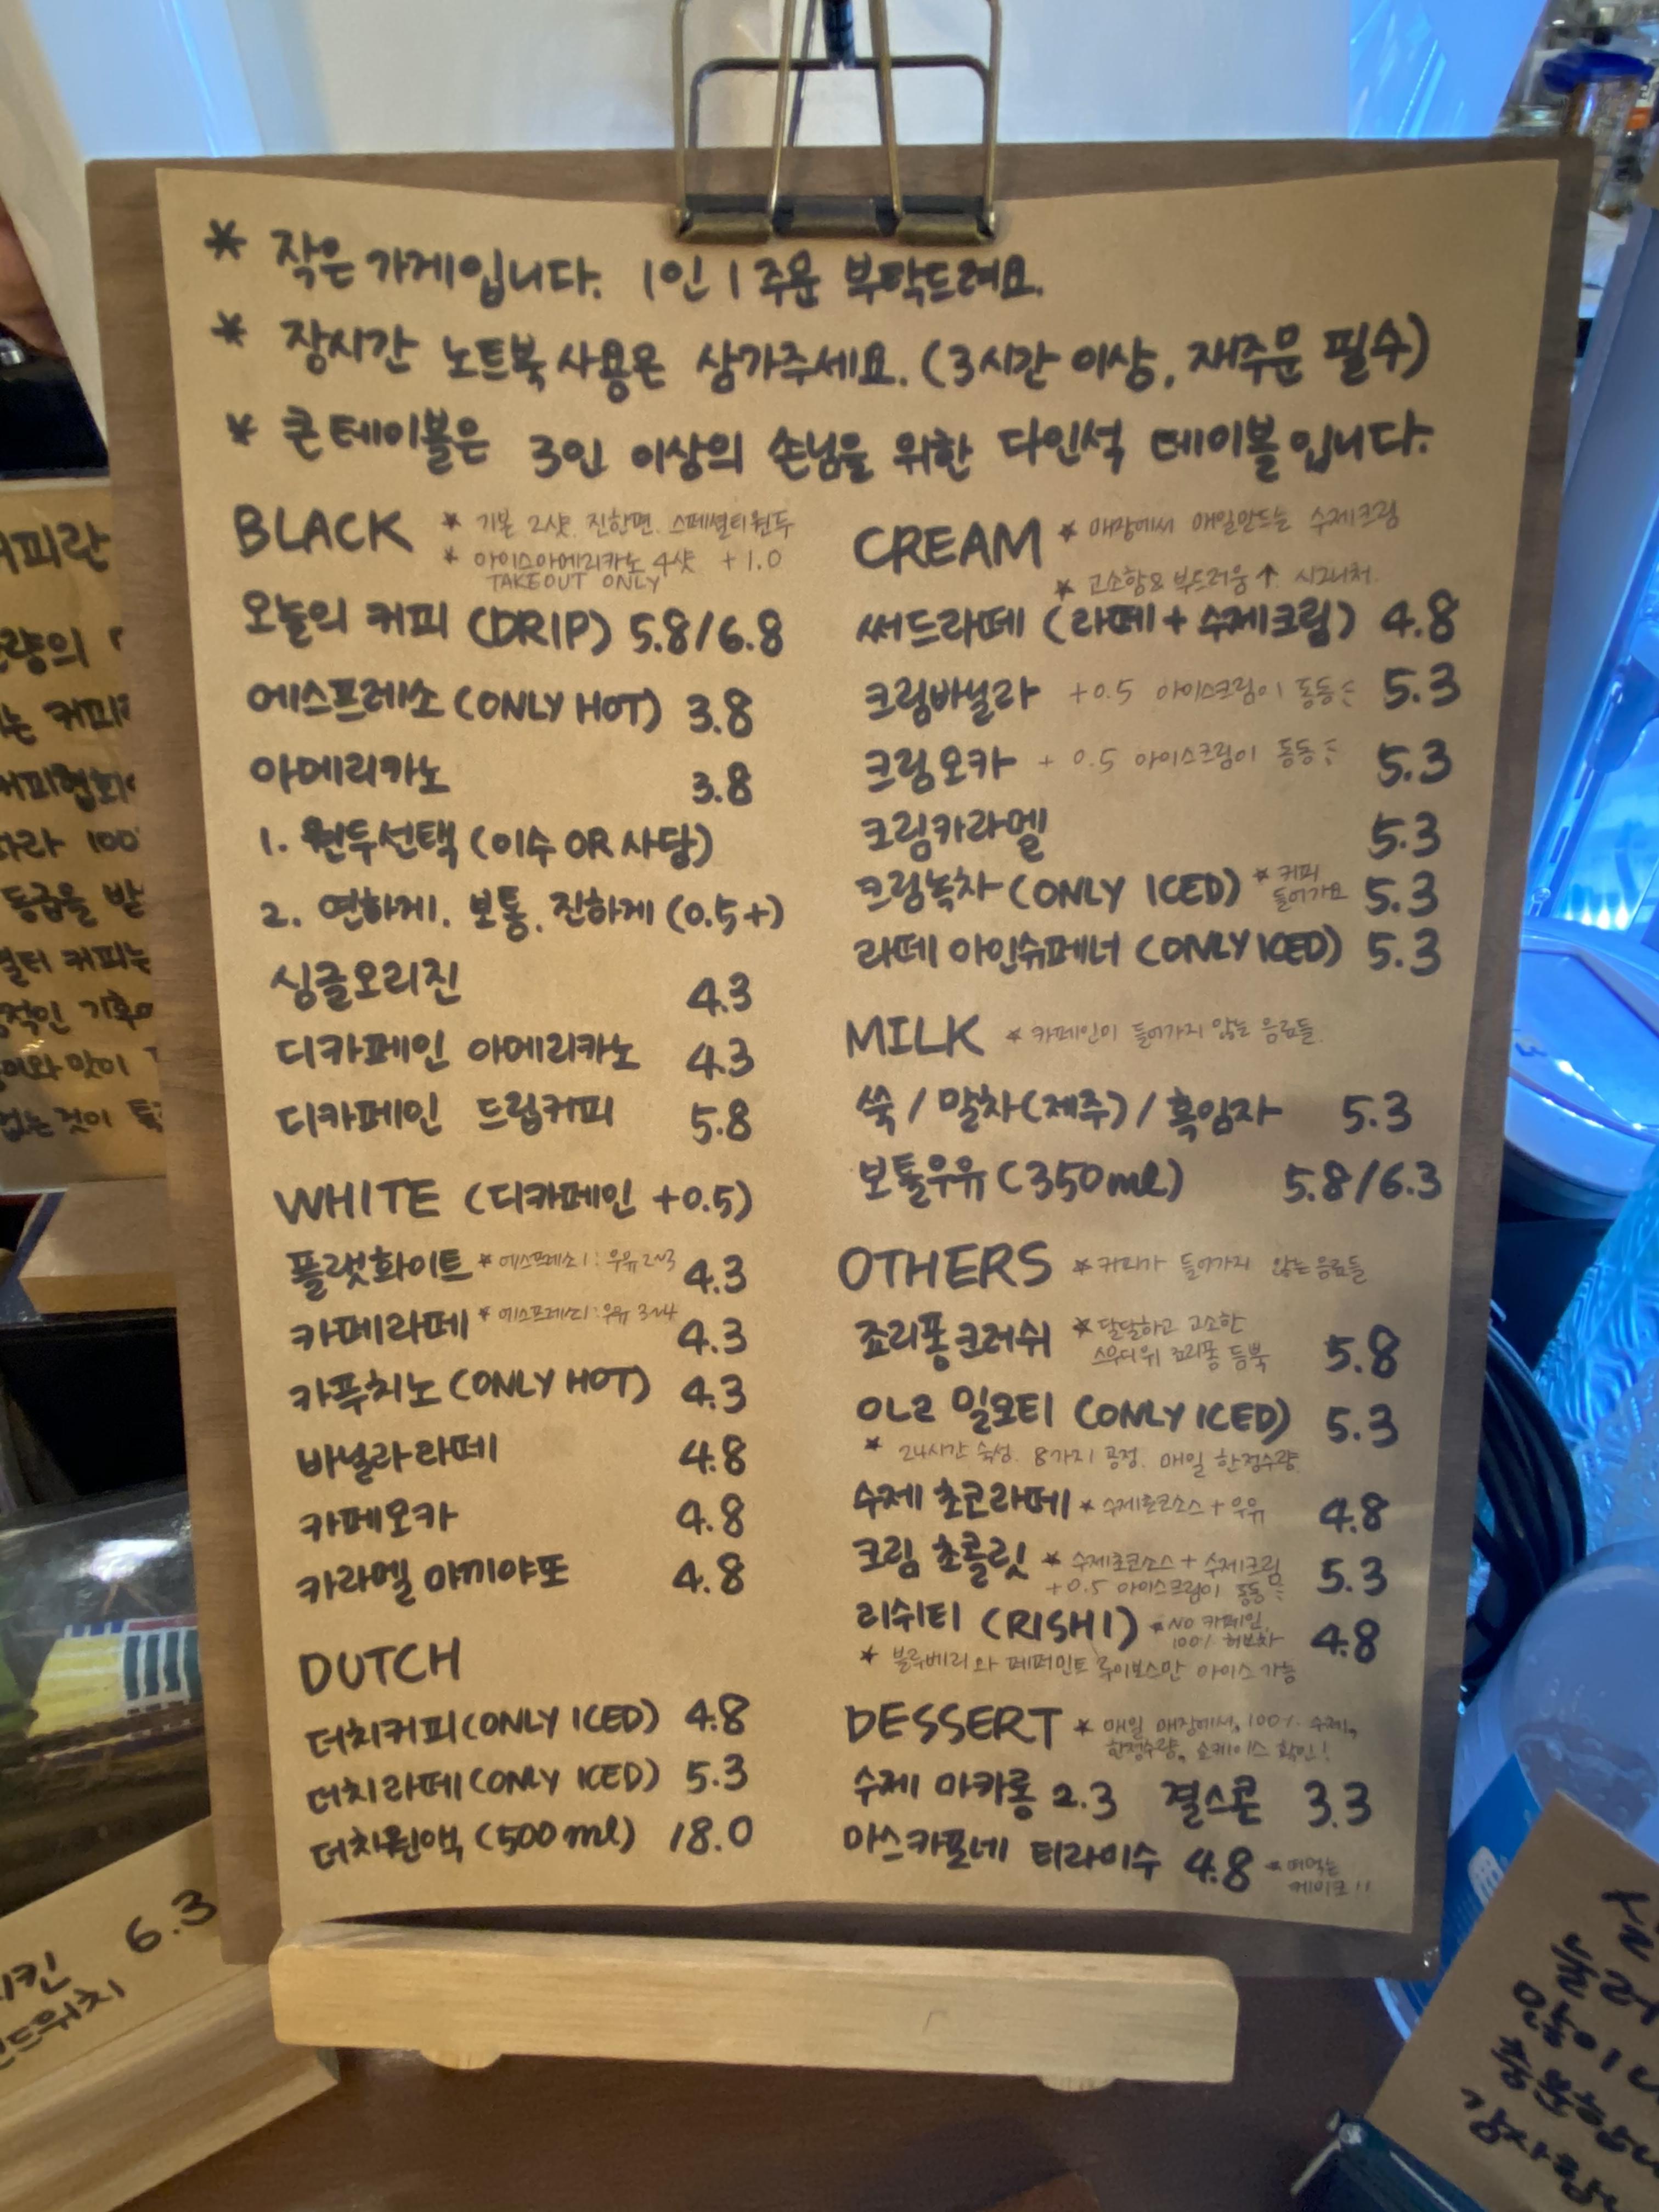 * 작은 가게입니다. 1인 1주문 부탁드려요.
* 장시간 노트북 사용은 삼가주세요. (3시간 이상, 재주문 필수)
* 큰 테이블은 3인 이상의 손님을 위한 다인석 테이블입니다.
BLACK
* 기본 2샷. 진한편. 스페셜티원두
* 아이스아메리카노 4샷 +1.0
TAKEOUT ONLY
오늘의 커피 (DRIP) 5.8/6.8
에스프레소 (ONLY HOT) 3.8
아메리카노 3.8
1. 원두선택 (이수 OR 사당)
2. 연하게. 보통. 진하게 (0.5+)
싱글오리진 4.3
디카페인 아메리카노 4.3
디카페인 드립커피 5.8
WHITE (디카페인 +0.5)
플랫화이트 * 에스프레소1 : 우유 2~3 4.3
카페라떼 * 에스프레소1 : 우유 3~4 4.3
카푸치노 (ONLY HOT) 4.3
바닐라라떼 4.8
카페모카 4.8
카라멜 마끼야또 4.8
DUTCH
더치커피(ONLY ICED) 4.8
더치라떼(ONLY ICED) 5.3
더치원액 (500ml) 18.0
CREAM * 매장에서 매일만드는 수제크림
* 고소함& 부드러움↑. 시그니처.
써드라떼 (라떼+수제크림) 4.8
크림바닐라 +0.5 아이스크림이 동동 5.3
크림모카 + 0.5 아이스크림이 동동 5.3
크림카라멜 5.3
크림녹차(ONLY ICED) * 커피 들어가요 5.3
라떼 아인슈페너 (ONLY ICED) 5.3
MILK * 카페인이 들어가지 않는 음료들.
쑥 / 말차(제주) / 흑임자 5.3
보틀우유 (350ml) 5.8/6.3
OTHERS * 커피가 들어가지 않는 음료들
죠리퐁크러쉬 * 달달하고 고소한 5.8
스무디위 죠리퐁 듬뿍
OLR 밀크티 (ONLY ICED) 5.3
* 24시간 숙성. 8가지 공정. 매일 한정수량
수제 초코라떼 * 수제초코소스 + 우유 4.8
크림 초콜릿 * 수제초코소스 + 수제크림 5.3
+0.5 아이스크림이 동동
리쉬티 (RISHI) * NO 카페인, 100% 허브차 4.8
* 블루베리와 페퍼민트 루이보스만 아이스 가능
DESSERT * 매일 매장에서, 100% 수제,
한정수량, 쇼케이스 확인!
수제 마카롱 2.3 결스콘 3.3
마스카포네 티라미수 4.8 * 떠먹는 케이크!!
6.3